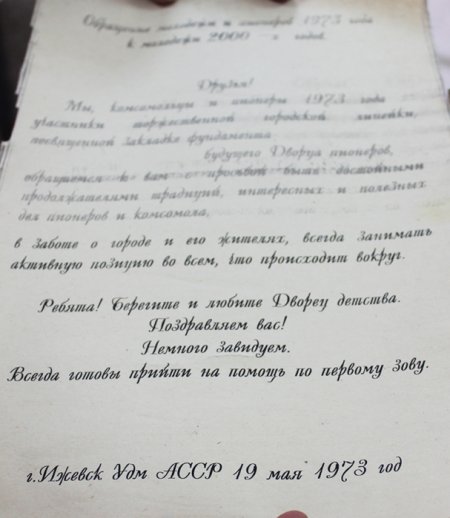 Обращение молодежи и пионеров 1973 года
к молодежи 2000-х годов.
Друзья!
Мы, комсомольцы и пионеры 1973 года
участники торжественной городской линейки,
посвященной закладке фундамента
будущего Дворца пионеров,
обращаемся к вам с просьбой быть достойными
продолжателями традиций, интересных и полезных
дел пионеров и комсомола,
в заботе о городе и его жителях, всегда занимать
активную позицию во всем, что происходит вокруг.
Ребята! Берегите и любите Дворец детства.
Поздравляем вас!
Немного завидуем.
Всегда готовы прийти на помощь по первому зову.
г.Ижевск Удм АССР 19 мая 1973 год